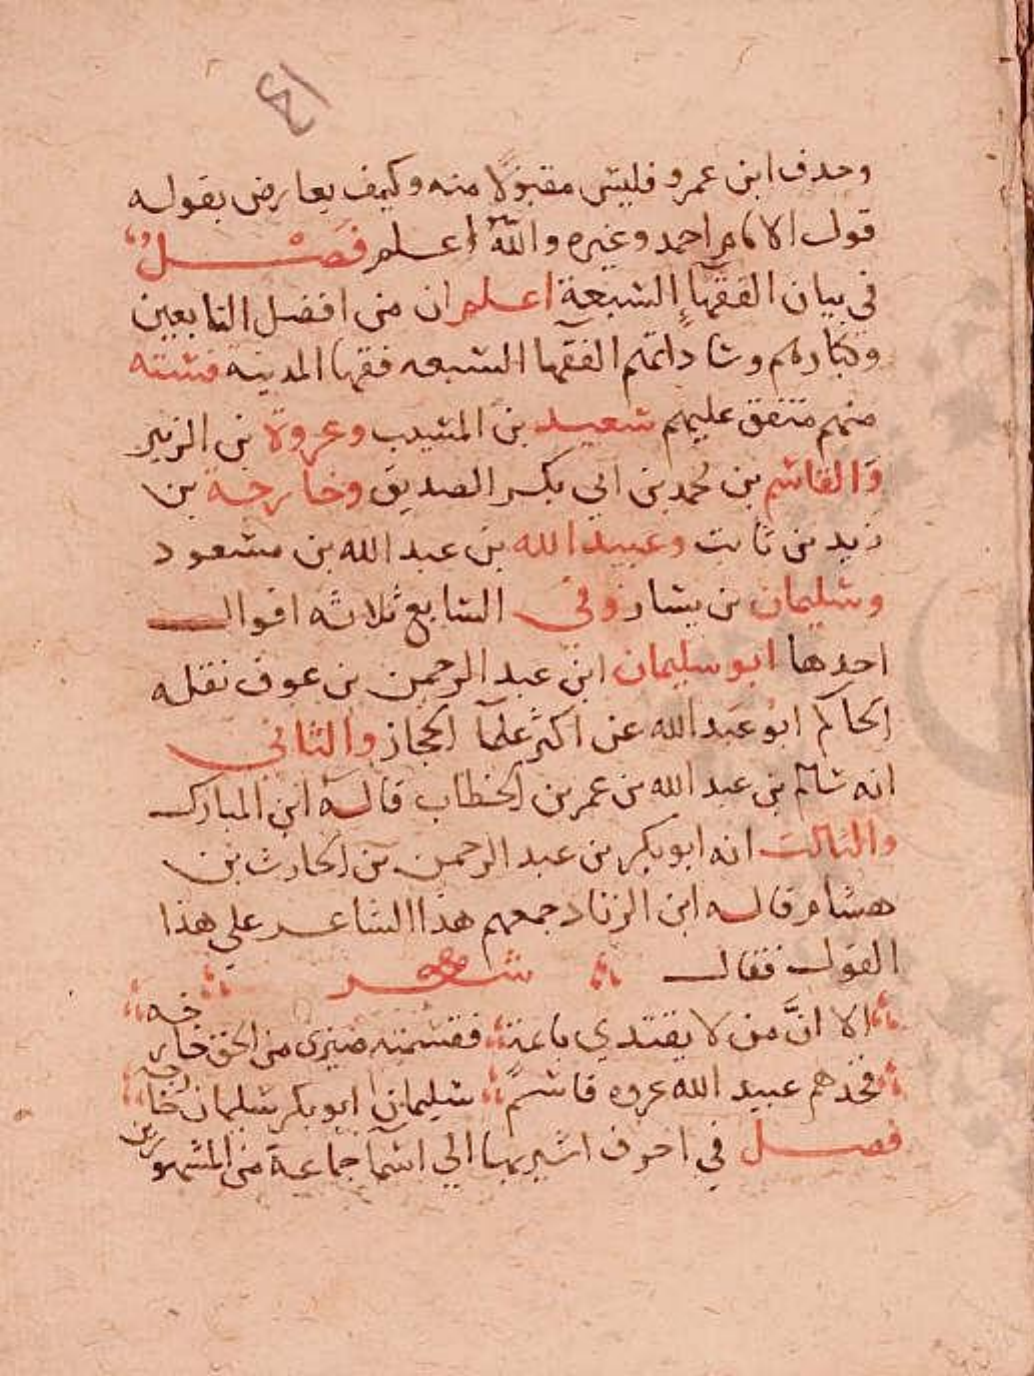 13
وحدف ابن عمرو فليس مقبولا منه وكيف يعارض بقوله
قول الامام احمد وغيره والله اعلم فصل
في بيان الفقهاء السبعة اعلم ان من افضل التابعين
وكبارهم وساداتهم الفقها السبعه فقها المدينه فستة
منهم متفق عليهم سعيد بن المسيب وعروة بن الزبير
والقاسم بن محمد بن ابي بكر الصديق وخارجة بن
زيد بن ثابت وعبيد الله بن عبد الله بن مسعود
وسليمان بن يسار وفي السابع ثلاثه اقوال
احدها ابو سليمان ابن عبد الرحمن بن عوف نقله
الحاكم ابو عبد الله عن اكثر علمآ الحجاز والثاني
انه سالم بن عبد الله بن عمر بن الخطاب قاله ابن المبارك
والثالث انه ابو بكر بن عبد الرحمن بن الحارث بن
هشام قاله ابن الزناد جمعهم هذا الشاعر على هذا
القول فقال شعر
الا انَّ من لا يقتدي بائمة فقسمته ضيزى من الحق خارجه
فخذهم عبيد الله عروه قاسم سليمان ابو بكر سليمان خارجه
فصل في احرف اشير بها الي اسمآ جماعة من المشهورين